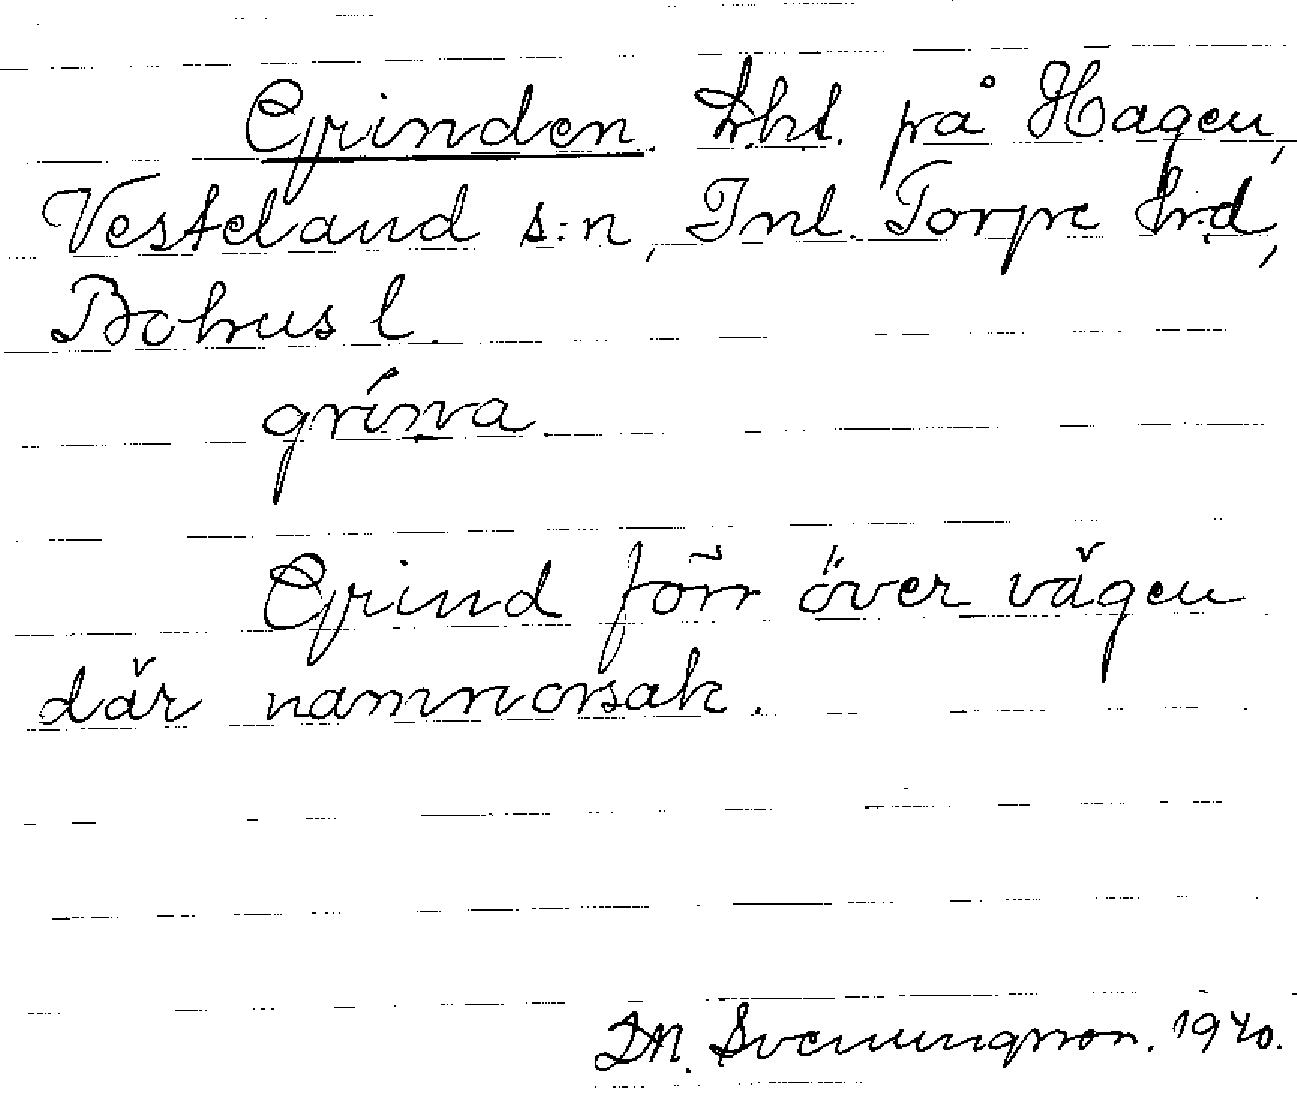 Grinden. Lht. på Hagen,
Västerland s:n, Inl. Torpe hrd,
Bohus l.
grínna
Grind förr över vägen
där namnorsak.
DN. Svenungsson. 1940.